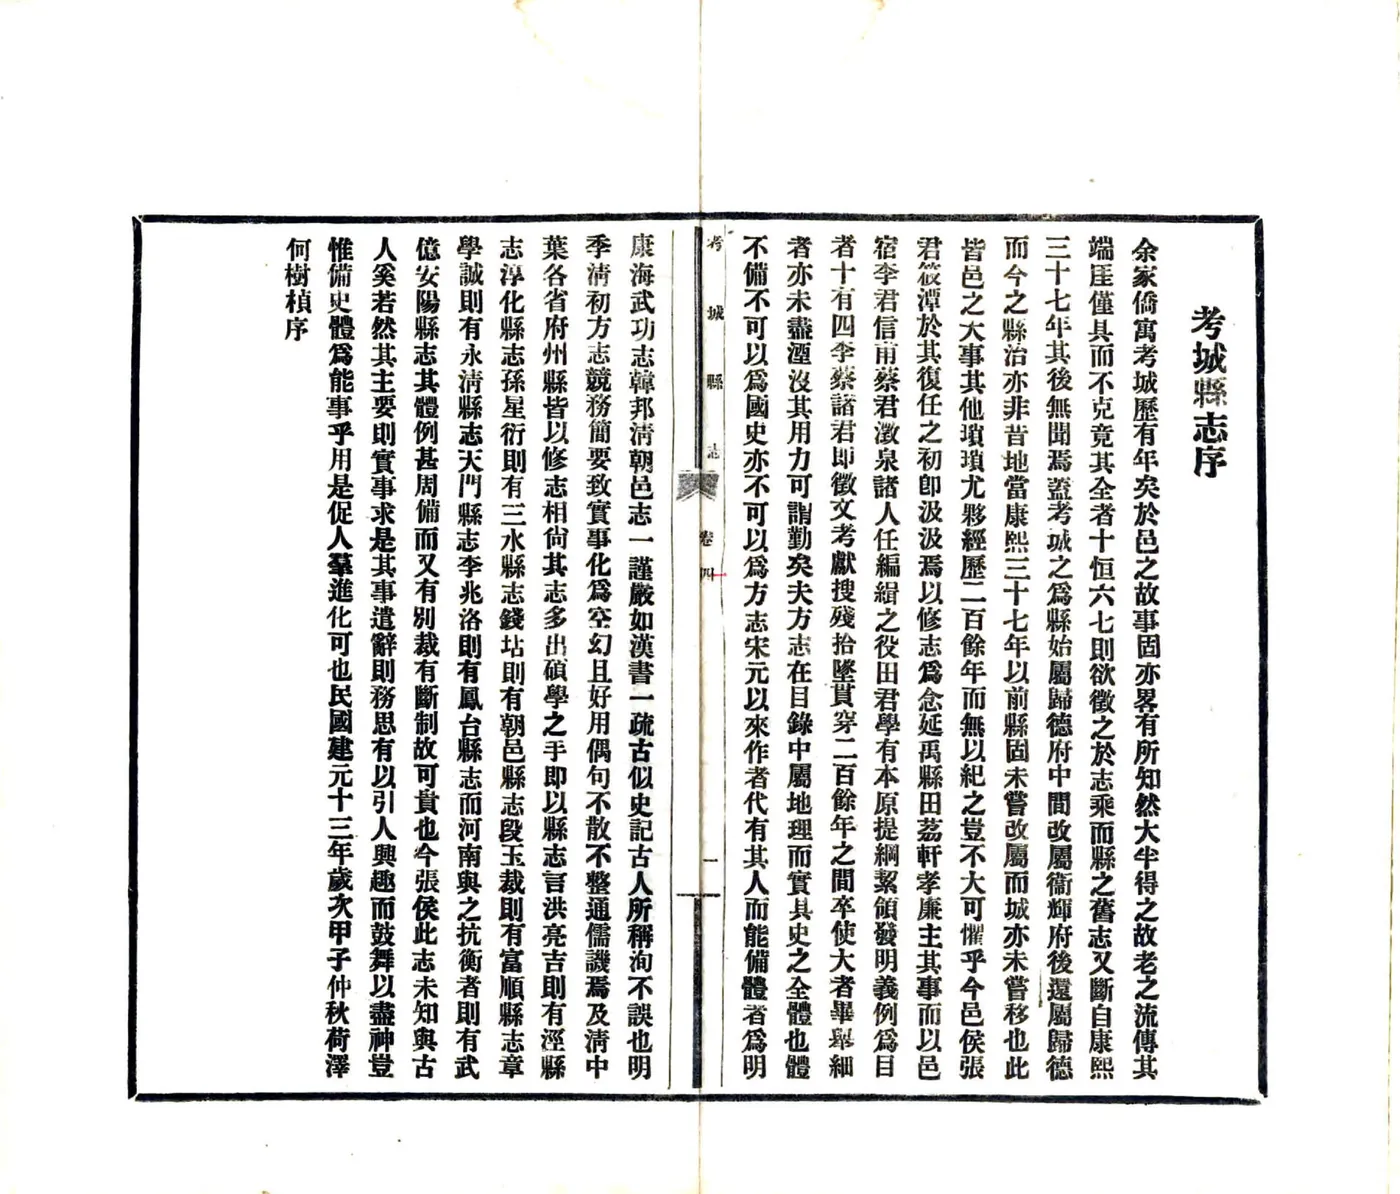 考城縣志序
余家僑寓考城歷有年矣於邑之故事固亦畧有所知然大半得之故老之流傳其
端厓僅具而不克竟其全者十恒六七則欲徵之於志乘而縣之舊志又斷自康熙
三十七年其後無聞焉蓋考城之爲縣始屬歸德府中間改屬衞輝府後還屬歸德
而今之縣治亦非昔地當康熙三十七年以前縣固未嘗改屬而城亦未嘗移也此
皆邑之大事其他瑣瑣尤夥經歷二百餘年而無以紀之豈不大可懼乎今邑侯張
君筱潭於其復任之初卽汲汲焉以修志爲念延禹縣田荔軒孝廉主其事而以邑
宿李君信甫蔡君澂泉諸人任編緝之役田君學有本原提綱絜領發明義例爲目
者十有四李蔡諸君卽徵文考獻搜殘拾墜貫穿二百餘年之間卒使大者畢舉細
者亦未盡湮沒其用力可謂勤矣夫方志在目錄中屬地理而實具史之全體也體
不備不可以爲國史亦不可以爲方志宋元以來作者代有其人而能備體者爲明
考城縣志
卷四
一
康海武功志韓邦淸朝邑志一謹嚴如漢書一疏古似史記古人所稱洵不誤也明
季淸初方志競務簡要致實事化爲空幻且好用偶句不散不整通儒譏焉及淸中
葉各省府州縣皆以修志相尙其志多出碩學之手即以縣志言洪亮吉則有涇縣
志淳化縣志孫星衍則有三水縣志錢坫則有朝邑縣志段玉裁則有富順縣志章
學誠則有永淸縣志天門縣志李兆洛則有鳳台縣志而河南與之抗衡者則有武
億安陽縣志其體例甚周備而又有別裁有斷制故可貴也今張侯此志未知與古
人奚若然其主要則實事求是其事遣辭則務思有以引人興趣而鼓舞以盡神豈
惟備史體爲能事乎用是促人羣進化可也民國建元十三年歲次甲子仲秋荷澤
何樹楨序